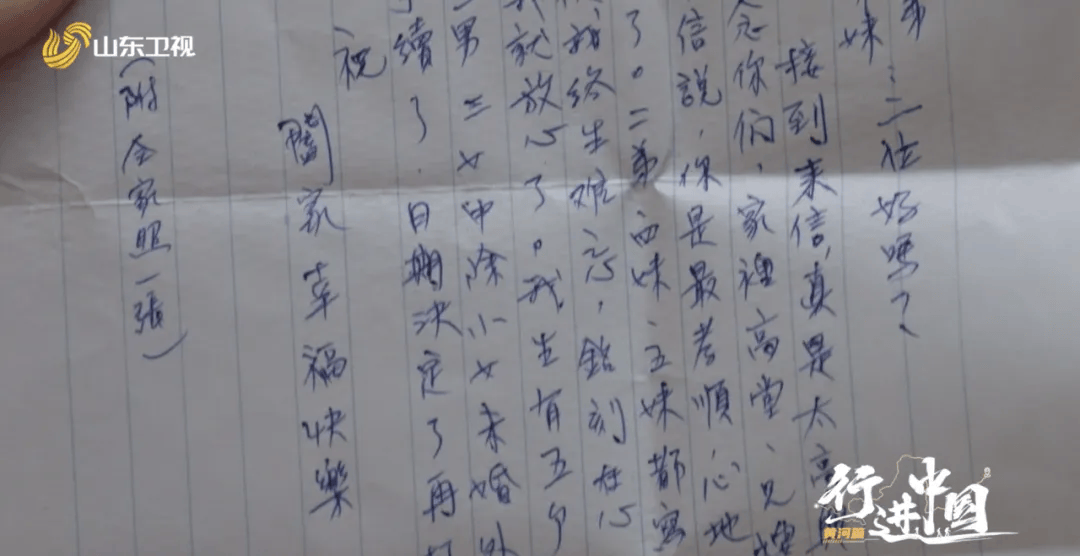 山东卫视
弟
妹：二位好嗎？
接到来信，真是太高興
念你们，家裡高堂、兄嫂
信説，你是最孝順，心地
了。二弟四妹、五妹都寫
我终生难忘，銘刻在心
我就放心了。我生有五个
二男三女中除小女未婚外
續了．日期決定了再
祝
闔家幸福快樂
（附全家照一張）
行进中国
黄河篇